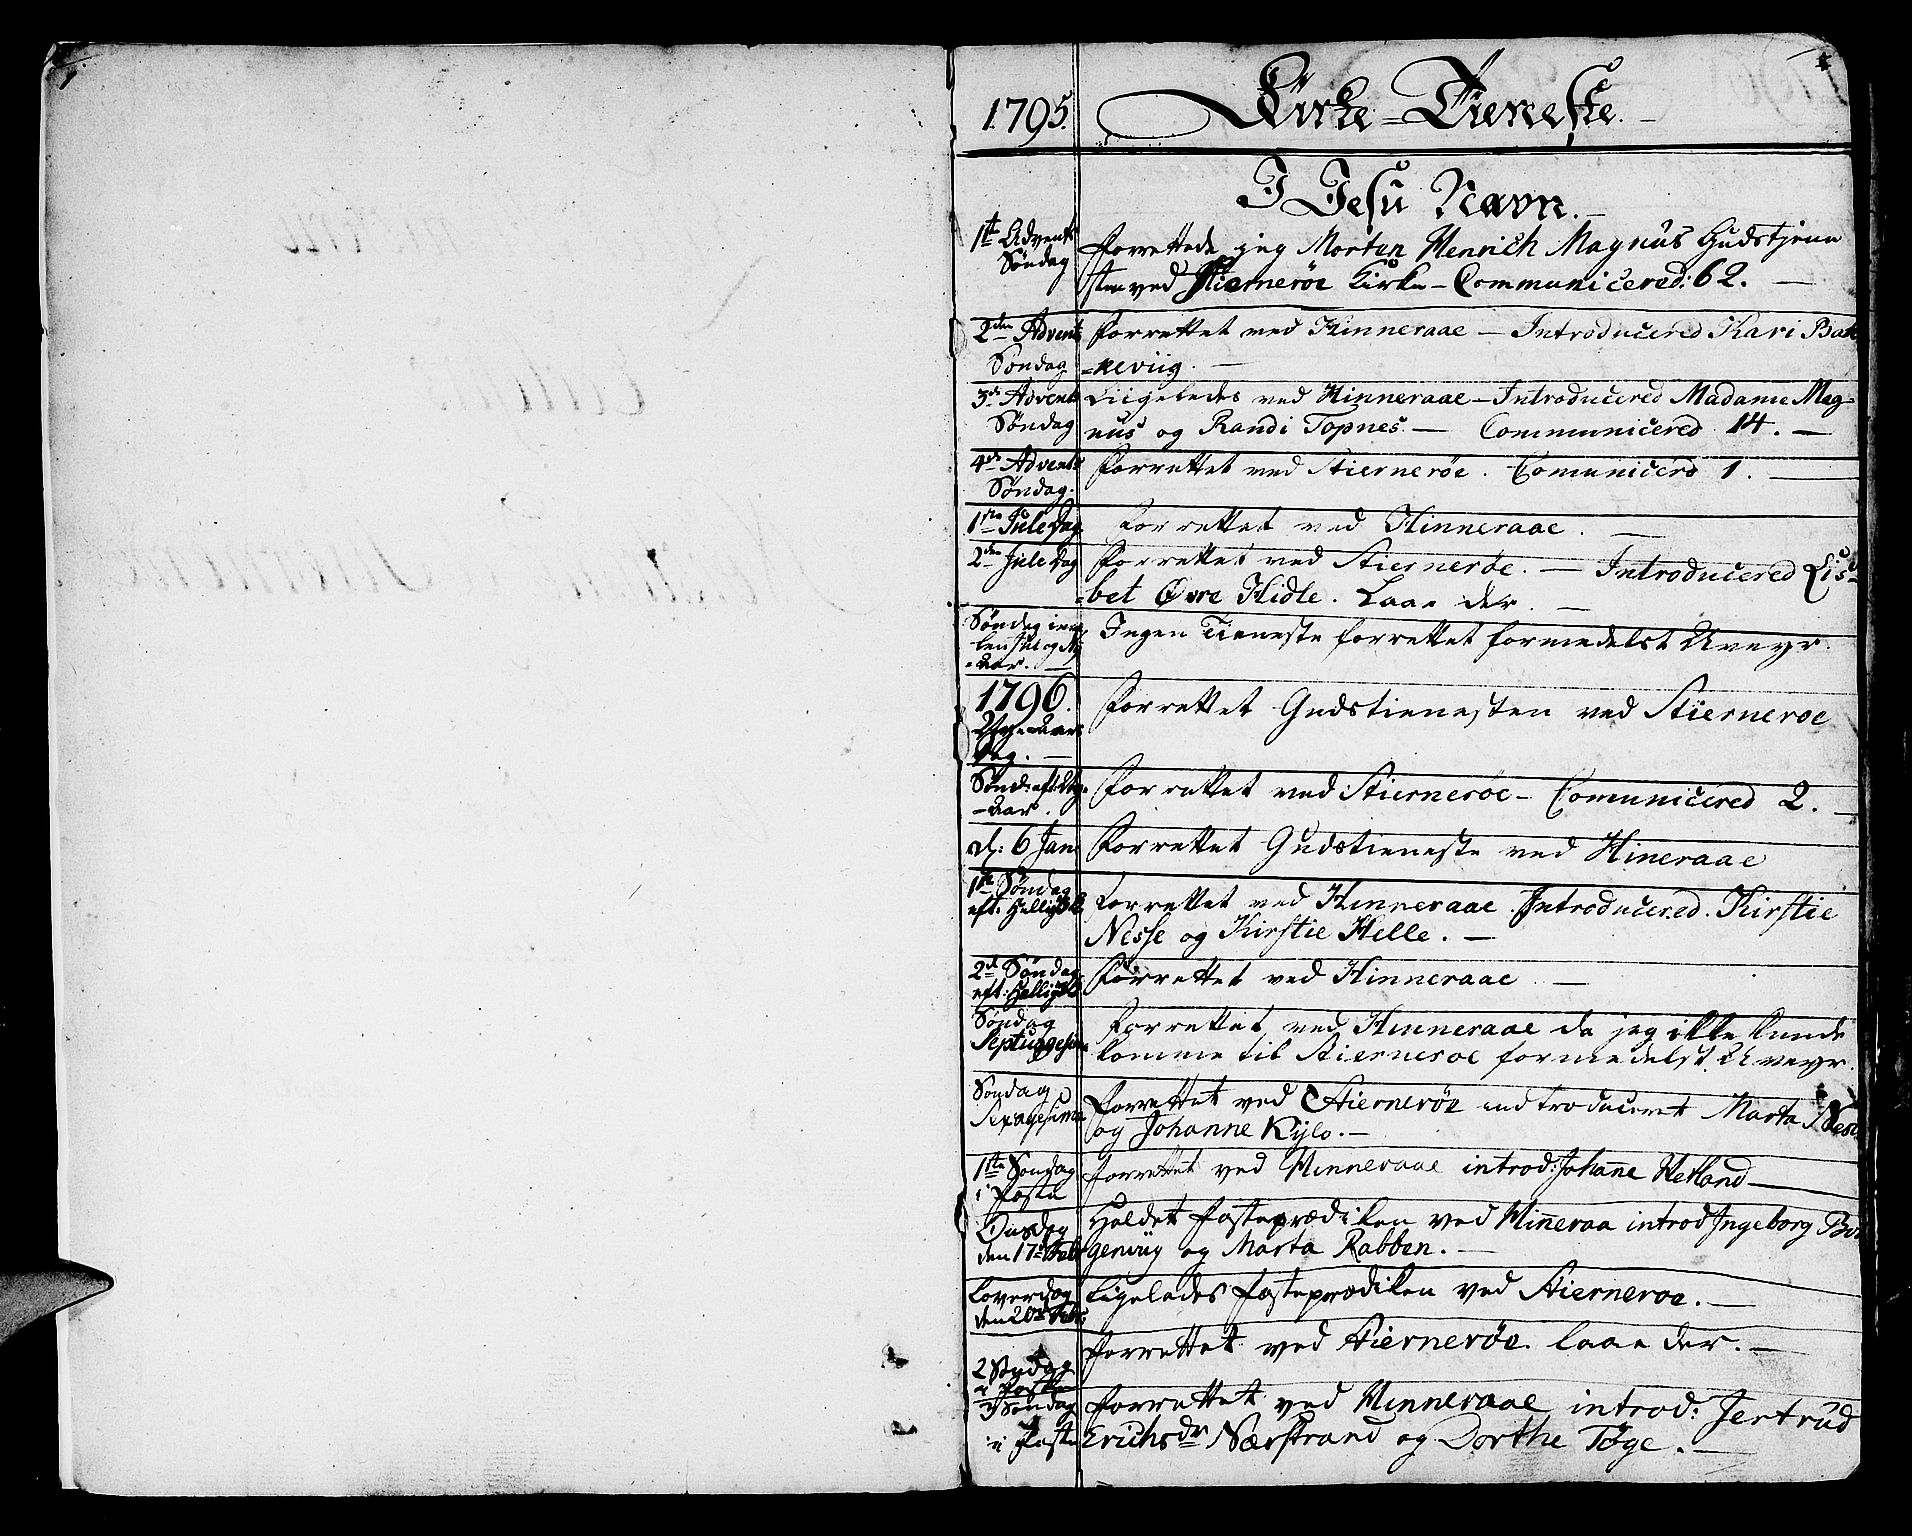 1795. Kirke-Tieneste.
I Jesu Navn.
1te Advents Søndag
forrettede jeg Morten Henrich Magnus Gudstjene
sten ved Stiernerøe Kirke - Communicered: 62.
2den Advents Søndag
Forrettet ved Hinneraae - Introducered Kari Bak
=neviig.
3de Advents Søndag
Liigeledes ved Hinneraae - Introducered Madame Mag=
nus og Randi Topnes. - Communicered 14.
4de Advents Søndag.
Forrettet ved Stiernerøe. Comunicerd 1.
1te Jule Dag
Forrettet ved Hinneraae.
2den Jule Dag
Forrettet ved Stiernerøe. - Introducered Lis=
=bet Øvre Hidle. Laae der.
Søndag imel
len Jul og Ny
=Aar.
Ingen Tieneste forrettet formedelst Uveyr.
1796.
Nye-Aars
Dag.
Forrettet Gudstienesten ved Stierneroe
Sønd: eft: Nye
-Aar.
Forrettet ved Stiernerøe - Comunicered 2.
d: 6 Jan
Forrettet Gudstieneste ved Hineraae
1te Søndag
eft: Hellig 3 K
Forrettet ved Hinneraae. Introducered. Kirstie
Nesse og Kirstie Helle.
2d Søndag
eft: Hellig 3 K
Forrettet ved Hinneraae
Søndag
Septuagesima
Forrettet ved Hinneraae da jeg ikke kunde
komme til Stierneroe formedelst Uveyr.
Søndag
Sexagesima
Forrettet ved Stiernerøe indtroduceret Marta Nesse
og Johanne Kylo.
1te Søndag
i Faste
forrettet ved Hinneraae introd: Johanne Hetland
Onsdag
den 17de Febr
Holdet Fasteprædiken ved Hinneraa introd Ingeborg Bor
genviig og Marta Rabben.
Loverdag
den 20de Febr:
Ligeledes Fasteprædiken ved Stierneroe.
2 Søndag
i Faste
forrettet ved Stiernerøe. laae der.
3 Søndag
i Faste
forrettet ved Hinneraae introd: Jertrud
Erichsdr Nærstrand og Dorthe Tøge.